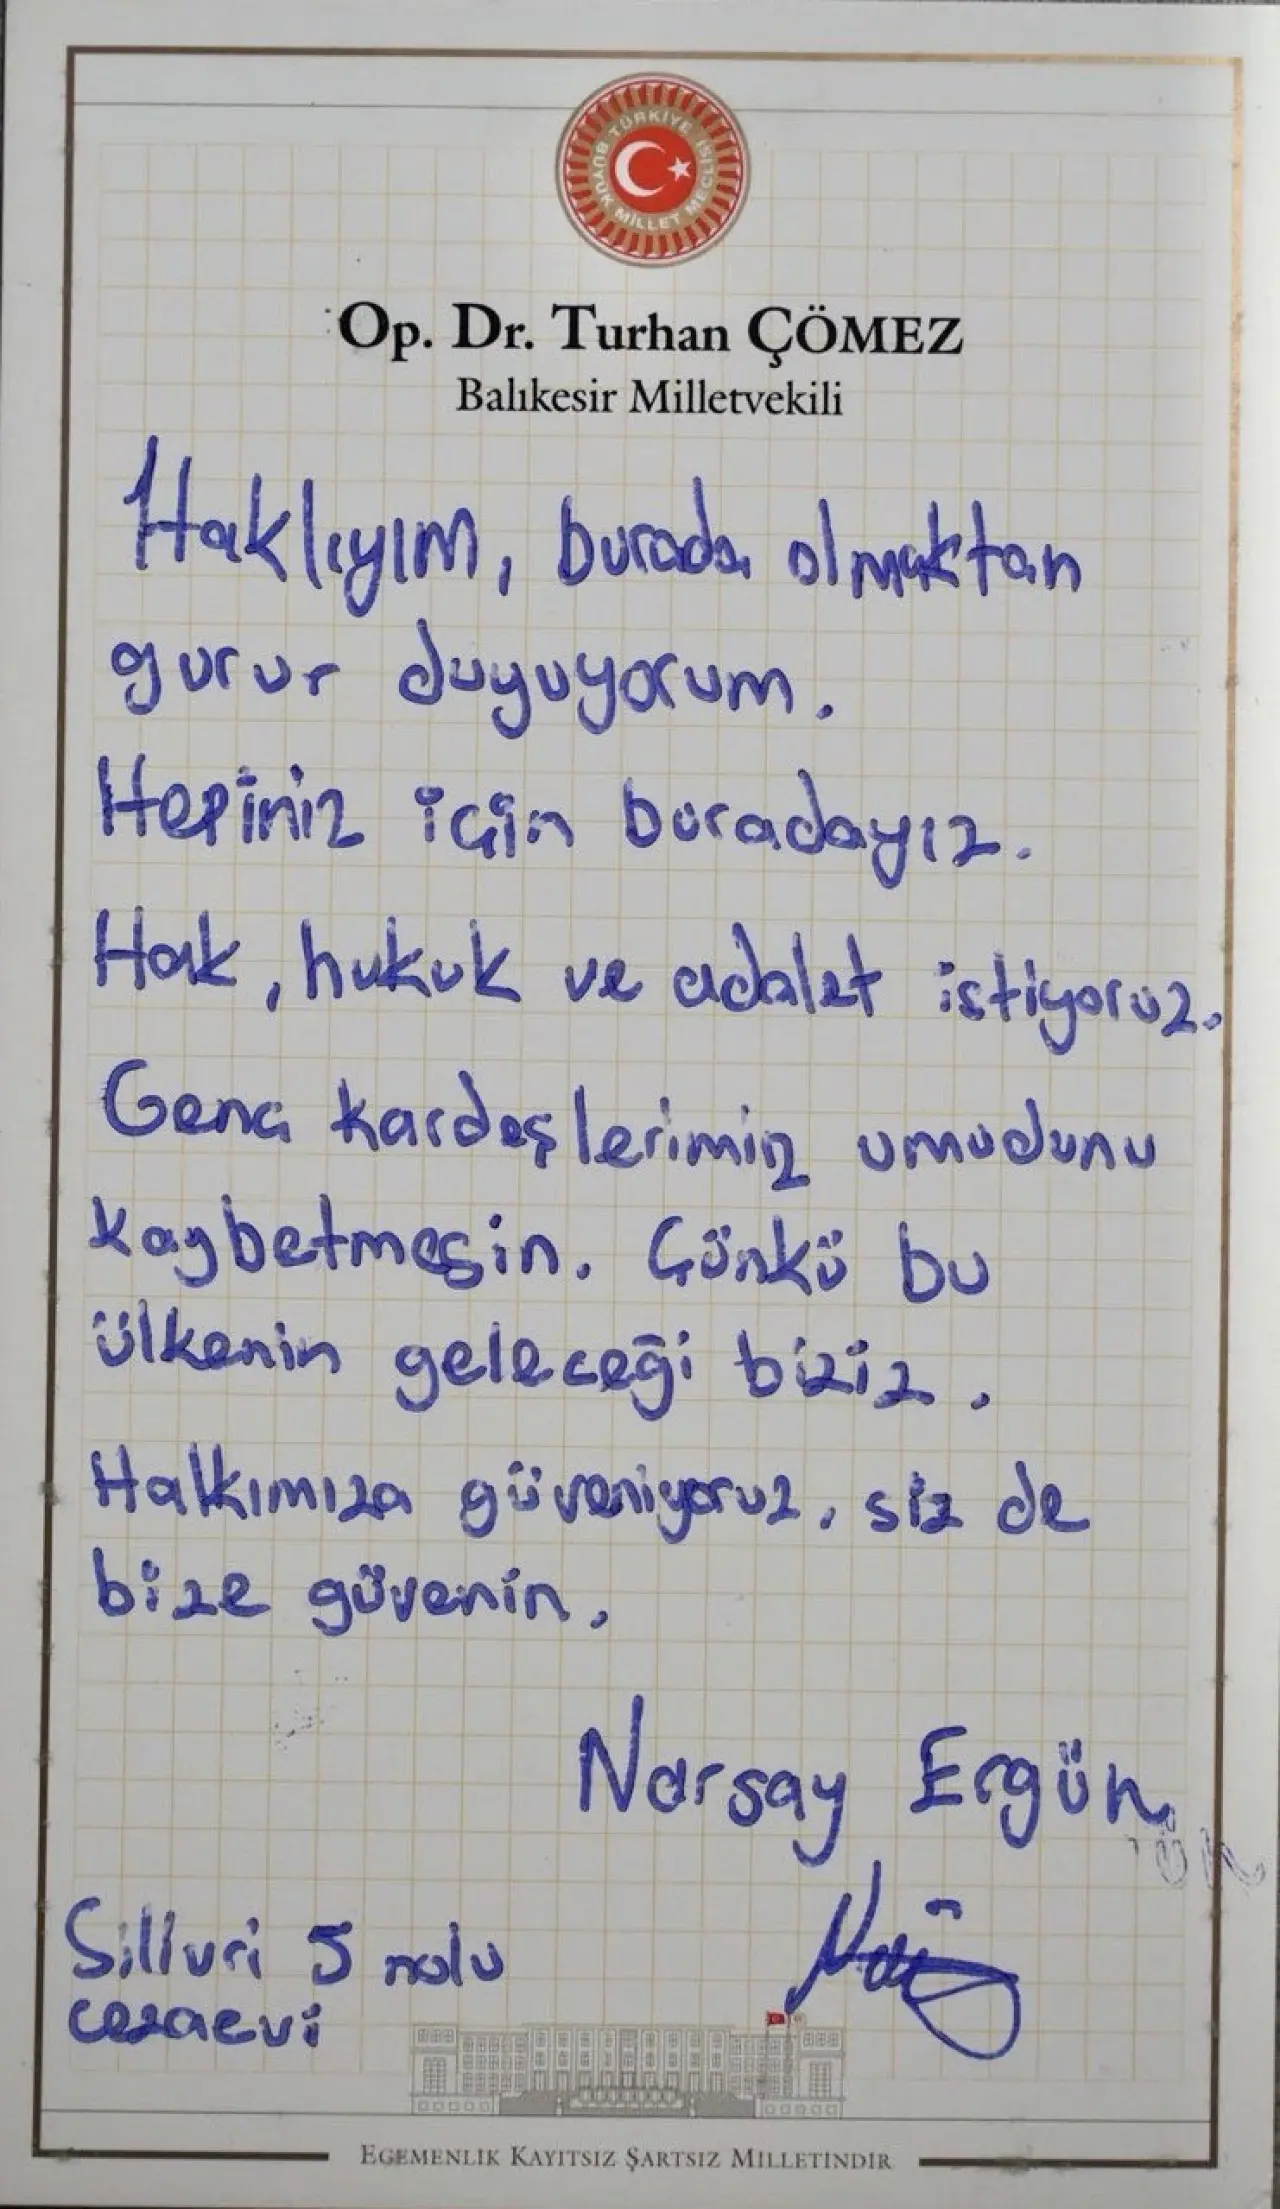 TÜRKİYE BÜYÜK MİLLET MECLİSİ
Op. Dr. Turhan ÇÖMEZ
Balıkesir Milletvekili
Haklıyım, burada olmaktan
gurur duyuyorum.
Hepiniz için buradayız.
Hak, hukuk ve adalet istiyoruz.
Genç kardeşlerimiz umudunu
kaybetmesin. Çünkü bu
ülkenin geleceği biziz.
Halkımıza güveniyoruz, siz de
bize güvenin.
Narsay Ergün
Silivri 5 nolu
cezaevi
EGEMENLİK KAYITSIZ ŞARTSIZ MİLLETİNDİR